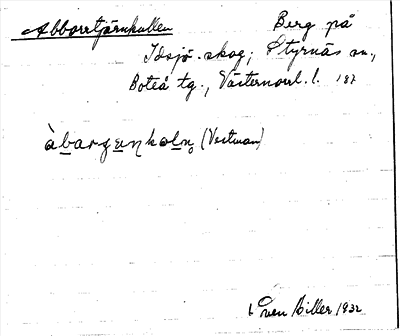 Abborrtjärnkullen Berg på
Idsjö skog; Styrnäs sn,
Boteå tg., Västernorrl. l. 187
(Vestman)
Sven Biller 1932